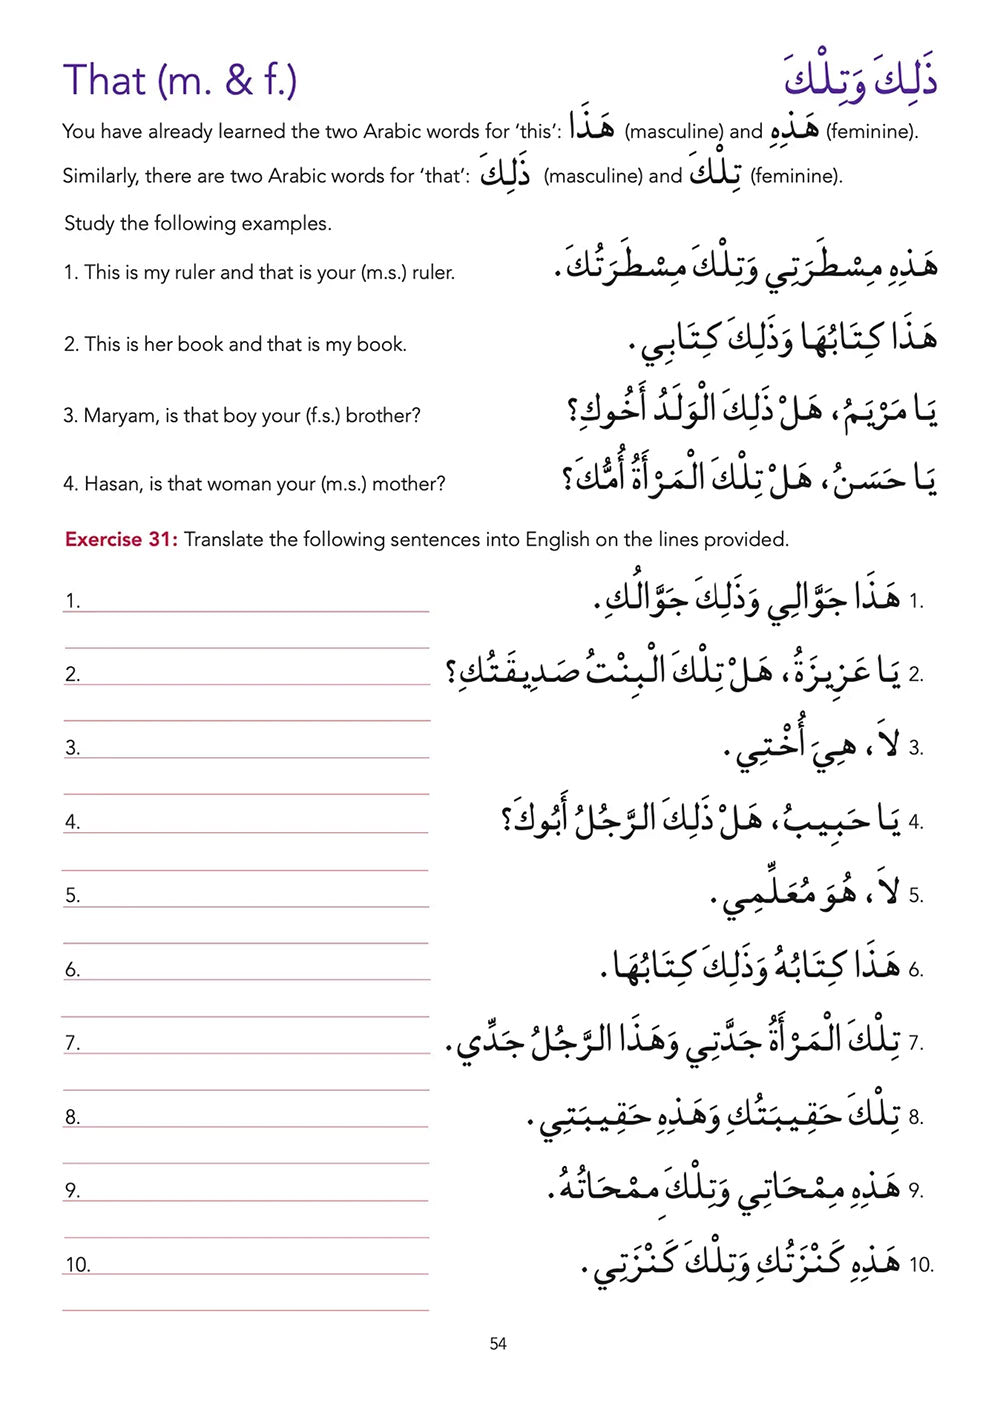 That (m. & f.) ذَلِكَ وَتِلْكَ
You have already learned the two Arabic words for ‘this’: هَذَا (masculine) and هَذِهِ (feminine).
Similarly, there are two Arabic words for ‘that’: ذَلِكَ (masculine) and تِلْكَ (feminine).
Study the following examples.
1. This is my ruler and that is your (m.s.) ruler. هَذِهِ مِسْطَرَتِي وَتِلْكَ مِسْطَرَتُكَ.
2. This is her book and that is my book. هَذَا كِتَابُهَا وَذَلِكَ كِتَابِي.
3. Maryam, is that boy your (f.s.) brother? يَا مَرْيَمُ، هَلْ ذَلِكَ الْوَلَدُ أَخُوكِ؟
4. Hasan, is that woman your (m.s.) mother? يَا حَسَنُ، هَلْ تِلْكَ الْمَرْأَةُ أُمُّكَ؟
Exercise 31: Translate the following sentences into English on the lines provided.
1. هَذَا جَوَّالِي وَذَلِكَ جَوَّالُكِ. 1.
2. يَا عَزِيزَةُ، هَلْ تِلْكَ الْبِنْتُ صَدِيقَتُكِ؟ 2.
3. لاَ، هِيَ أُخْتِي. 3.
4. يَا حَبِيبُ، هَلْ ذَلِكَ الرَّجُلُ أَبُوكَ؟ 4.
5. لاَ، هُوَ مُعَلِّمِي. 5.
6. هَذَا كِتَابُهُ وَذَلِكَ كِتَابُهَا. 6.
7. تِلْكَ الْمَرْأَةُ جَدَّتِي وَهَذَا الرَّجُلُ جَدِّي. 7.
8. تِلْكَ حَقِيبَتُكِ وَهَذِهِ حَقِيبَتِي. 8.
9. هَذِهِ مِمْحَاتِي وَتِلْكَ مِمْحَاتُهُ. 9.
10. هَذِهِ كَنْزَتُكِ وَتِلْكَ كَنْزَتِي. 10.
54